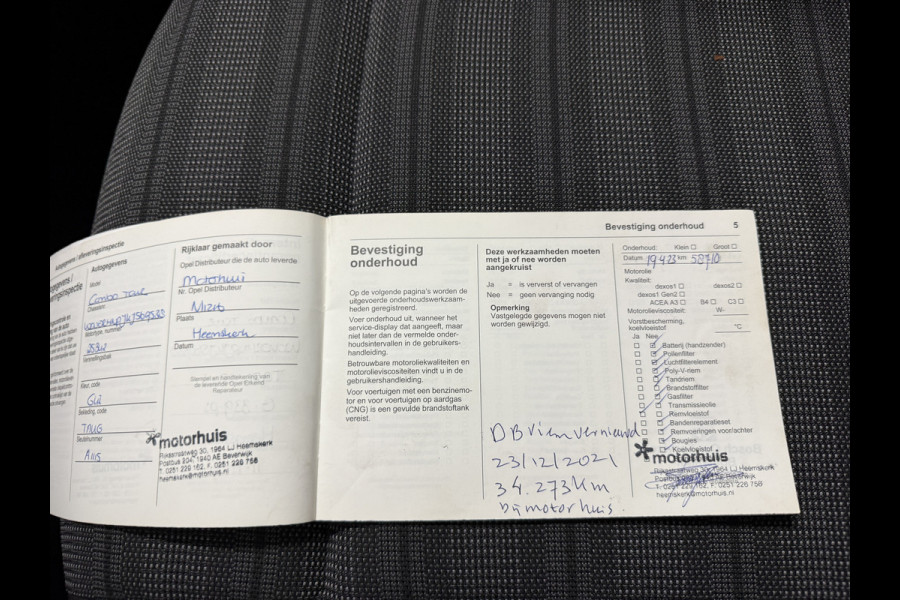 Autogegevens
Model
Combo Tour
Gl2
Bekleding, code
TAUG
Sleutelnummer
motorhuis
Rijksstraatweg 30, 1964 LJ Heemskerk
Postbus 204, 1940 AE Beverwijk
T. 0251 229 162, F. 0251 226 758
heemskerk@motorhuis.nl
Rijklaar gemaakt door
Opel Distributeur die de auto leverde
Motorhui
Nr. Opel Distributeur
Plaats
Heemskerk
Datum
Stempel en handtekening van
de leverende Opel Erkend
Reparateur
Bevestiging onderhoud 5
Bevestiging
onderhoud
Op de volgende pagina's worden de
uitgevoerde onderhoudswerkzaam-
heden geregistreerd.
Voer onderhoud uit, wanneer het
service-display dat aangeeft, maar
niet later dan de vermelde onder-
houdsintervallen in de gebruikers-
handleiding.
Betrouwbare motoroliekwaliteiten en
motorolieviscositeiten vindt u in de
gebruikershandleiding.
Voor voertuigen met een benzinemo-
tor en voor voertuigen op aardgas
(CNG) is een gevulde brandstoftank
vereist.
Deze werkzaamheden moeten
met ja of nee worden
aangekruist
Ja = is ververst of vervangen
Nee = geen vervanging nodig
Opmerking
Vastgelegde gegevens mogen niet
worden gewijzigd.
DBriem vernieuwd
23/12/2021
34.273km
bij motorhuis
Onderhoud: Klein ☐ Groot ☐
Datum 19-4-23 km 58710
Motorolie
Kwaliteit:
dexos1 ☐ dexos2 ☐
dexos1 Gen2 ☐
ACEA A3 ☐ B4 ☐ C3 ☐
Motorolieviscositeit: W-
Vorstbescherming,
koelvloeistof °C
Ja Nee
Batterij (handzender)
Pollenfilter
Luchtfilterelement
Poly-V-riem
Tandriem
Brandstoffilter
Gasfilter
Transmissieolie
Remvloeistof
Bandenreparatieset
Remvoeringen voor/achter
Bougies
Koelvloeistof
motorhuis
Rijksstraatweg 30, 1964 LJ Heemskerk
T. 0251 229 162, F. 0251 226 758
heemskerk@motorhuis.nl